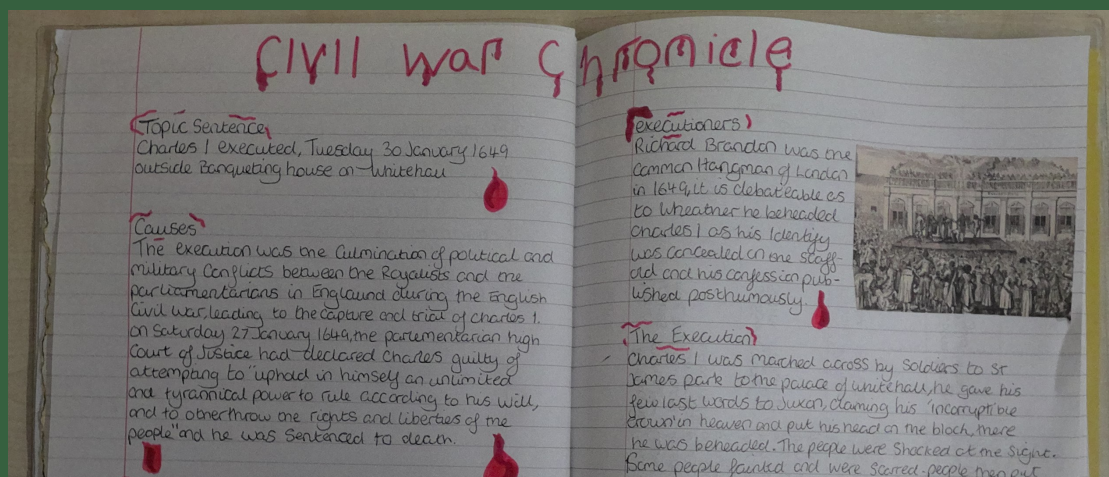 Civil war Chronicle
Topic Sentence
Charles I executed, Tuesday 30 January 1649
outside Banqueting house on Whitehall
Causes
The execution was the Culmination of political and
military Conflicts between the Royalists and the
parliamentarians in Englaund during the English
Civil war, leading to the capture and trial of charles 1.
on Saturday 27 January 1649, the parlementarian high
Court of Justice had declared Charles guilty of
attempting to "uphold in himself an unlimited
and tyrannical power to rule according to his will,
and to otherthrow the rights and liberties of the
people" and he was sentenced to death.
executioners
Richard Brandon was the
Common Hangman of London
in 1649, it is debateable as
to wheather he beheaded
Charles I as his Identity
was concealed on the scaff-
old and his confession pub-
lished posthumously.
The Execution
Charles I was marched across by soldiers to St
James park to the palace of whitehall, he gave his
few last words to Juxon, claming his "incorruptible
crown" in heaven and put his head on the block, there
he was beheaded. The people were shocked at the signt.
Some people fainted and were scarred. people then put